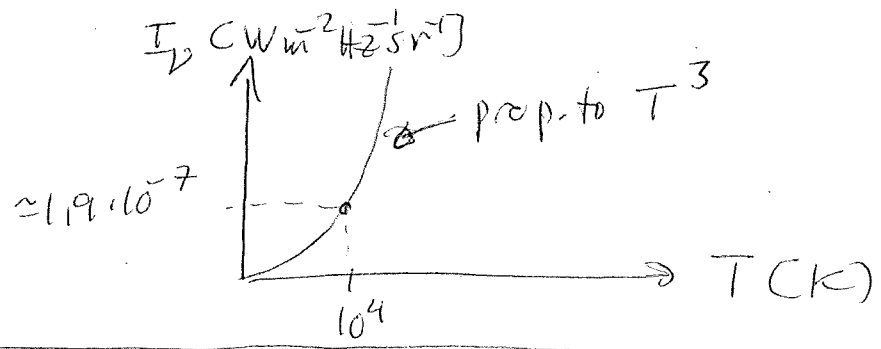 I_ν [W m⁻² Hz⁻¹ sr⁻¹]
prop. to T³
≃1,9·10⁻⁷
T (K)
10⁴